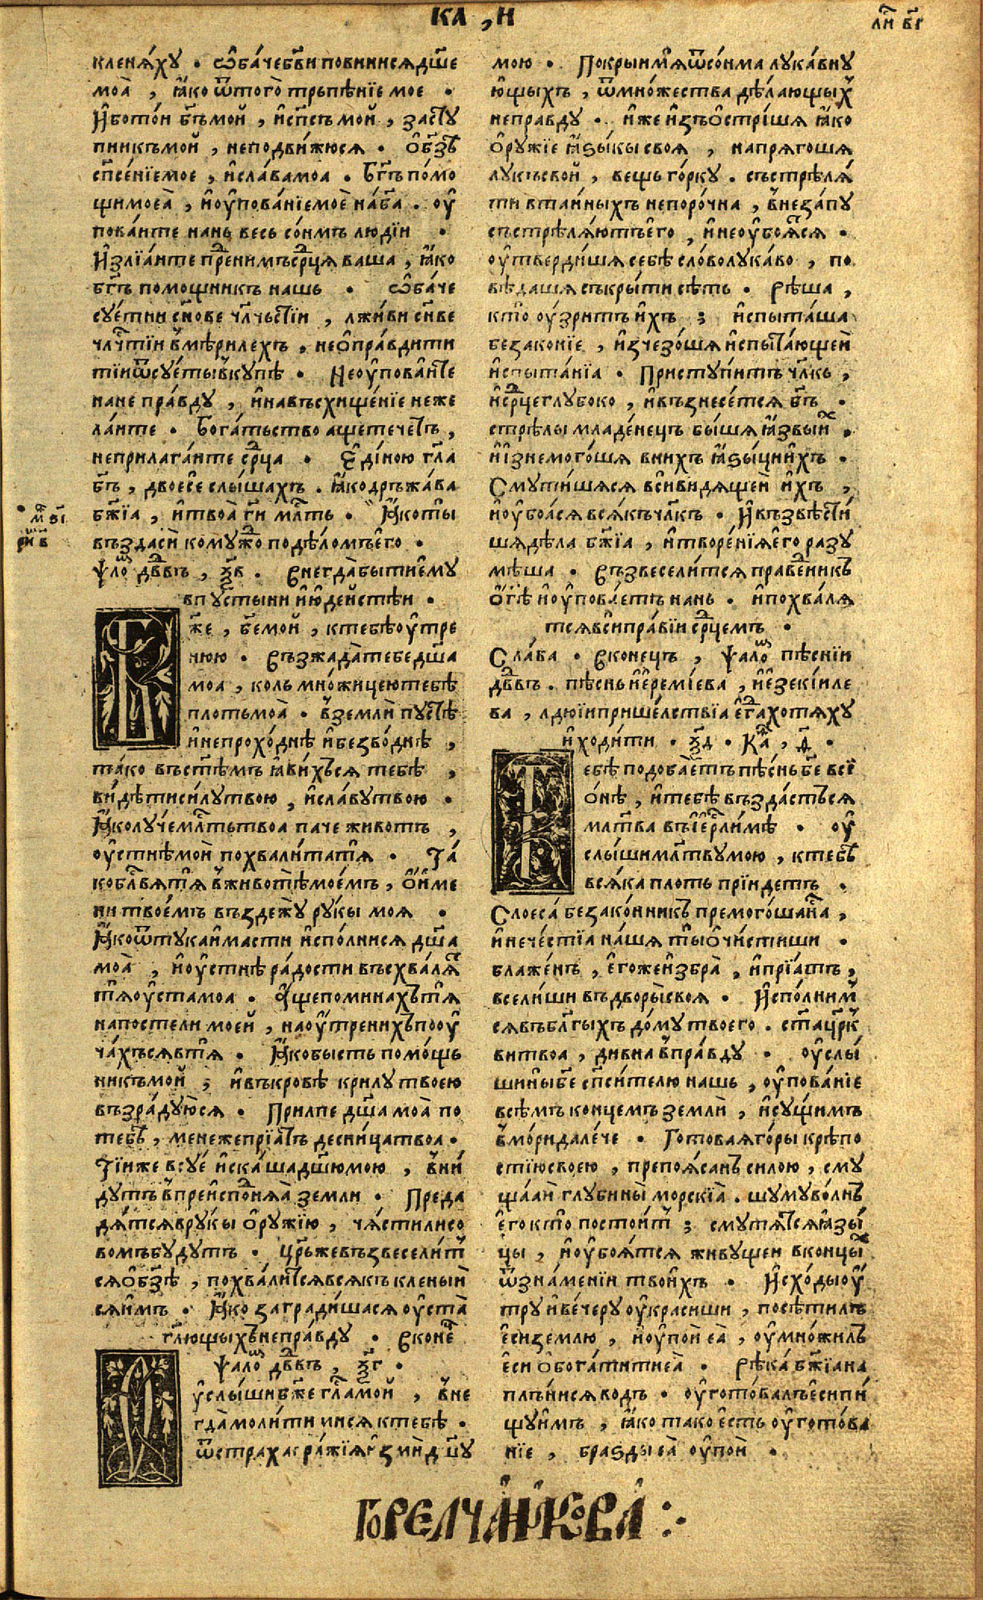 КА , И
кленѧ́ху . ѡ҆ба́чебг҃ви повинисѧдш҃е
моѧ̀ , ꙗ҆́ко ѿтого̀ трьпѣ́нїе мое .
И҆́ботои҆ бг҃ъмои҆ , и҆сп҃съ мои҆ , засту
пникъмои҆ , неподви́жюсѧ . ѡ҆ бз҃ѣ
сп҃сенїемое , и҆сла́вамоа . Бг҃ъ по́мо
щимоеѧ̀ , и҆оу҆пова́нїемое на́ба . оу҆
пова́ите нань весь со́нмъ людїи .
И҆злїа́ите пре́нимъ ср҃цѧ ваша , ꙗ҆́ко
бг҃ъ помощникъ нашь . ѡ҆ба́че
суетни сн҃ове чл҃чьстїи , лжи́ви сн҃ве
чл҃чтїи в҆мѣ́рилехъ , нео҆пра́вдити
тїиѿсуе́ты в҆купѣ . Неоу҆пова́ите
нане пра́вду , и҆навъсхищенїе неже
ла́ите . Бога́тьство аще тече́тъ ,
неприлага́ите ср҃ца . Є҆ди́ною гл҃а
бг҃ъ , двоесе слы́шахъ . ꙗ҆кодръжа́ва
бж҃їа , и҆твоа̀ ги мл҃ть . ꙗ҆́коты
въздасѝ комуждо по дѣломъ е҆го .
Ѱало̑ дв҃двъ , ѯ҃в . внегда̀бытиему
впустыни и҆ю҆дейстѣи .
же , бг҃емой , ктебѣоу҆тре
нюю . въжада̀тебе дш҃а
моа , коль мно́жицеютебѣ
плотьмоа̀ . в҆землѝ пустѣ
и҆непрохо́днѣ и҆безво́днѣ ,
та́ко въ ст҃ѣмъ ꙗ҆ви́хъсѧ тебѣ ,
ви́дѣтиси́лутвою , и҆сла́вутвою .
ꙗ҆́колу́чемл҃тьтвоа паче животъ ,
оу҆стнѣмои похвали́татѧ . Та́
кобл҃гвѧ́тѧ в҆животѣмое́мъ , о҆име
ни твое́мъ въздежу рукы моѧ .
ꙗ҆́коѿтукаи҆масти и҆спо́лнисѧ дш҃а
моа̀ , и҆оу҆стнѣ ра́дости въсхвалѧ
тѧоу҆стамоа . А҆щепоминахътѧ
напостели моей , наоу҆тренихъпооу҆
ча́хъсѧвтѧ . ꙗ҆́кобысть помо́щь
никъмой ; и҆въкровѣ крилу твоею
възра́дуюсѧ . Прилпе дш҃а моа̀ по
тебѣ , менежепрїа́тъ десни́цатвоа .
Тїиже всуе́ и҆ска́шадш҃юмою , в҆ни́
дутъ в҆преиспо́днѧа̀ земли . Преда
дѧ́тсѧврукы о҆ру́жїю , ча́стилисо
вомъбу́дутъ . Цр҃ьжевъзвесели́т
сѧо҆бз҃ѣ , похва́литсѧвсѧкъ кленыи҆
сѧи҆мъ . ꙗ҆́ко загради́шасѧ оу҆ста̀
гл҃ющыхънепра́вду . вконе́
Ѱало̑ дв҃двъ , ѯ҃г .
услы́шибж҃е гл҃амой , вне
гда̀моли́ти мисѧ ктебѣ .
ѿстрахагра́жїѧ и҆змѝ дш҃у
м҃ ві
рн в
ли вг
мою . Покры́и мѧѿсо́нма лука́вну
ющыхъ , ѿмно́жества дѣ́лающых
неправду . и҆же и҆зъѡ҆стри́шѧ ꙗ҆ко
о҆ружїе ꙗ҆зы́кы своѧ , напрѧгошѧ
лукъ свой , вещь го́рку . състрелѧ́
ти втаи́ныхъ непоро́чна , внеза́пу
състрѣлѧ́ютъе҆го , и҆неоу҆боѧ́сѧ .
оу҆тверди́шѧ себѣ сло́во лука́во , по
вѣ́дашѧ съкры́ти сѣть . рѣ́ша ,
кто̀ оу҆зритъ и҆хъ ; и҆спыта́ша
безаконїе , и҆зчезо́шѧ и҆спыта́ющеи
и҆спыта́нїа . Присту́питъ чл҃къ ,
и҆ср҃це глубоко , и҆възнесе́тсѧ бг҃ъ .
стрѣ́лы младе́нецъ бы́шѧ ꙗ҆звы и҆х .
и҆и҆знемого́шѧ вни́хъ ꙗ҆зы́ци и҆хъ .
Смути́шѧсѧ вси видѧщей и҆хъ ,
и҆оу҆боа́сѧ всѧкъчл҃къ . И҆възвѣсти́
шѧдѣ́ла бж҃їа , и҆творе́нїѧе҆го разу
мѣ́ша . възвесели́тсѧ пра́веникъ
о҆ гѣ и҆оу҆пова́етъ нань . и҆похва́лѧ
тсѧвсипра́вїи ср҃цемъ .
Сла́ва . вконецъ , Ѱало̑ пѣсни́и
дв҃двъ . пѣсньи҆еремі́ева , и҆е҆зекі́иле
ва , лдюїиприше́лствїа е҆гда хотѧ́ху
и҆ходи́ти . ѯ҃д . Каѳ , д҃ .
ебѣ подоба́етъпѣ́снь бж҃е всї
о́нѣ , и҆тебѣ възда́стьсѧ
мл҃тва въі҆ерс҃лимѣ . оу҆
слы́шимл҃твумою , ктебѣ
всѧ́ка плоть прїидетъ .
Словеса́ безако́нникъ премого́шана ,
и҆нече́стїа на́шѧ ты̀о҆чи́стиши .
блаже́нъ , е҆го́жеи҆збра̀ , и҆прїатъ ,
всели́ши въдворы̀своѧ . И҆спо́лним
сѧвъбл҃гыхъ до́му твоего . ст҃ацр҃к
витвоа , дивна в҆пра́вду . оу҆слы́
шины̀бж҃е сп҃си́телю нашь , оу҆пова́нїе
всѣ́мъ концемъ землѝ , и҆су́щимъ
в҆мо́ридале́че . Гото́ваѧго́ры крѣ́по
стїюсвоею , препоѧ́санъ си́лою , сму
ща́аи глубины̀ морскі́а . шуму во́лнъ
е҆гокто̀ постои́т ; смутѧ́тсѧꙗ҆зы́
цы , и҆оу҆боѧтсѧ живущеи вконцы́х
ѿзна́менїи твои́хъ . И҆схо́дыоу҆
тру и҆ве́черу оу҆краси́ши , посѣти́лъ
е҆сиземлю , и҆оу҆пои́ еа̀ , оу҆мно́жилъ
еси о҆бога́титиеа̀ . рѣка́ бж҃їана
плънисѧ водъ . оу҆гото́валъе҆сипи́
щуи҆мъ , ꙗ҆ко та́ко есть оу҆гото́ва
нїе , бразды̀еа̀ оу҆поѝ .
Горелчаникова